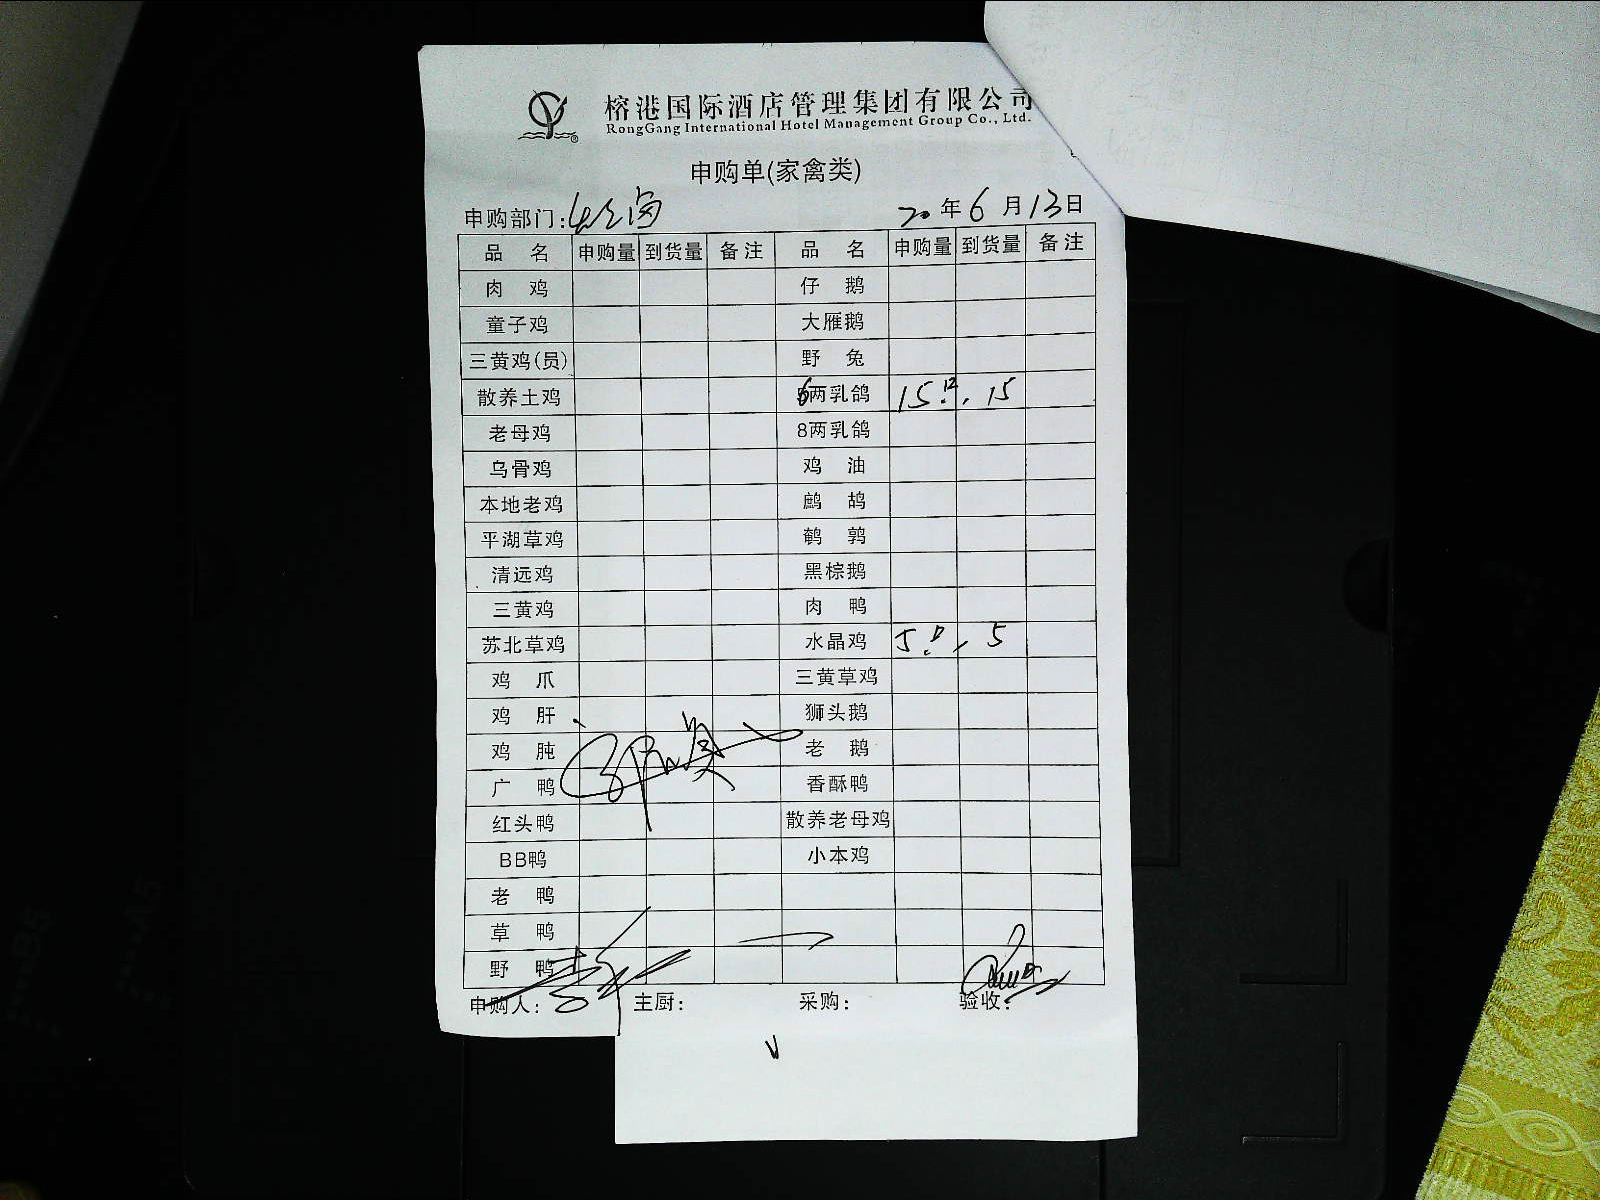 榕港国际酒店管理集团有限公司
RongGang International Hotel Management Group Co., Ltd.
申购单(家禽类)
申购部门: 20年6月13日
品 名 申购量 到货量 备注 品 名 申购量 到货量 备注
肉 鸡 仔 鹅
童子鸡 大雁鹅
三黄鸡(员) 野 兔
散养土鸡 6两乳鸽 15 15
老母鸡 8两乳鸽
乌骨鸡 鸡 油
本地老鸡 鹧 鸪
平湖草鸡 鹌 鹑
清远鸡 黑棕鹅
三黄鸡 肉 鸭
苏北草鸡 水晶鸡 5 5
鸡 爪 三黄草鸡
鸡 肝 狮头鹅
鸡 肫 老 鹅
广 鸭 香酥鸭
红头鸭 散养老母鸡
BB鸭 小本鸡
老 鸭
草 鸭
野 鸭
申购人: 主厨: 采购: 验收:
B5
A5